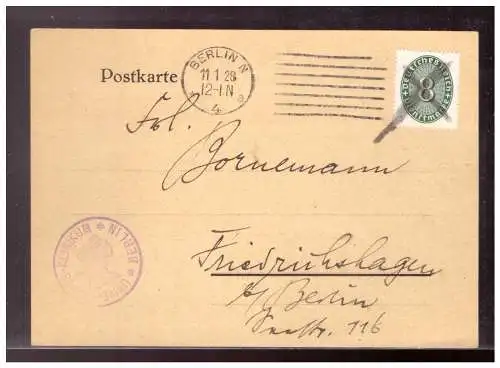 BERLIN N
11.1.28
12-1 N
* 4 a
Postkarte
Deutsches Reich
8
Dienstmarke
Frl. Bornemann
Friedrichshagen
b/Berlin
Seestr. 116
* BERLIN *